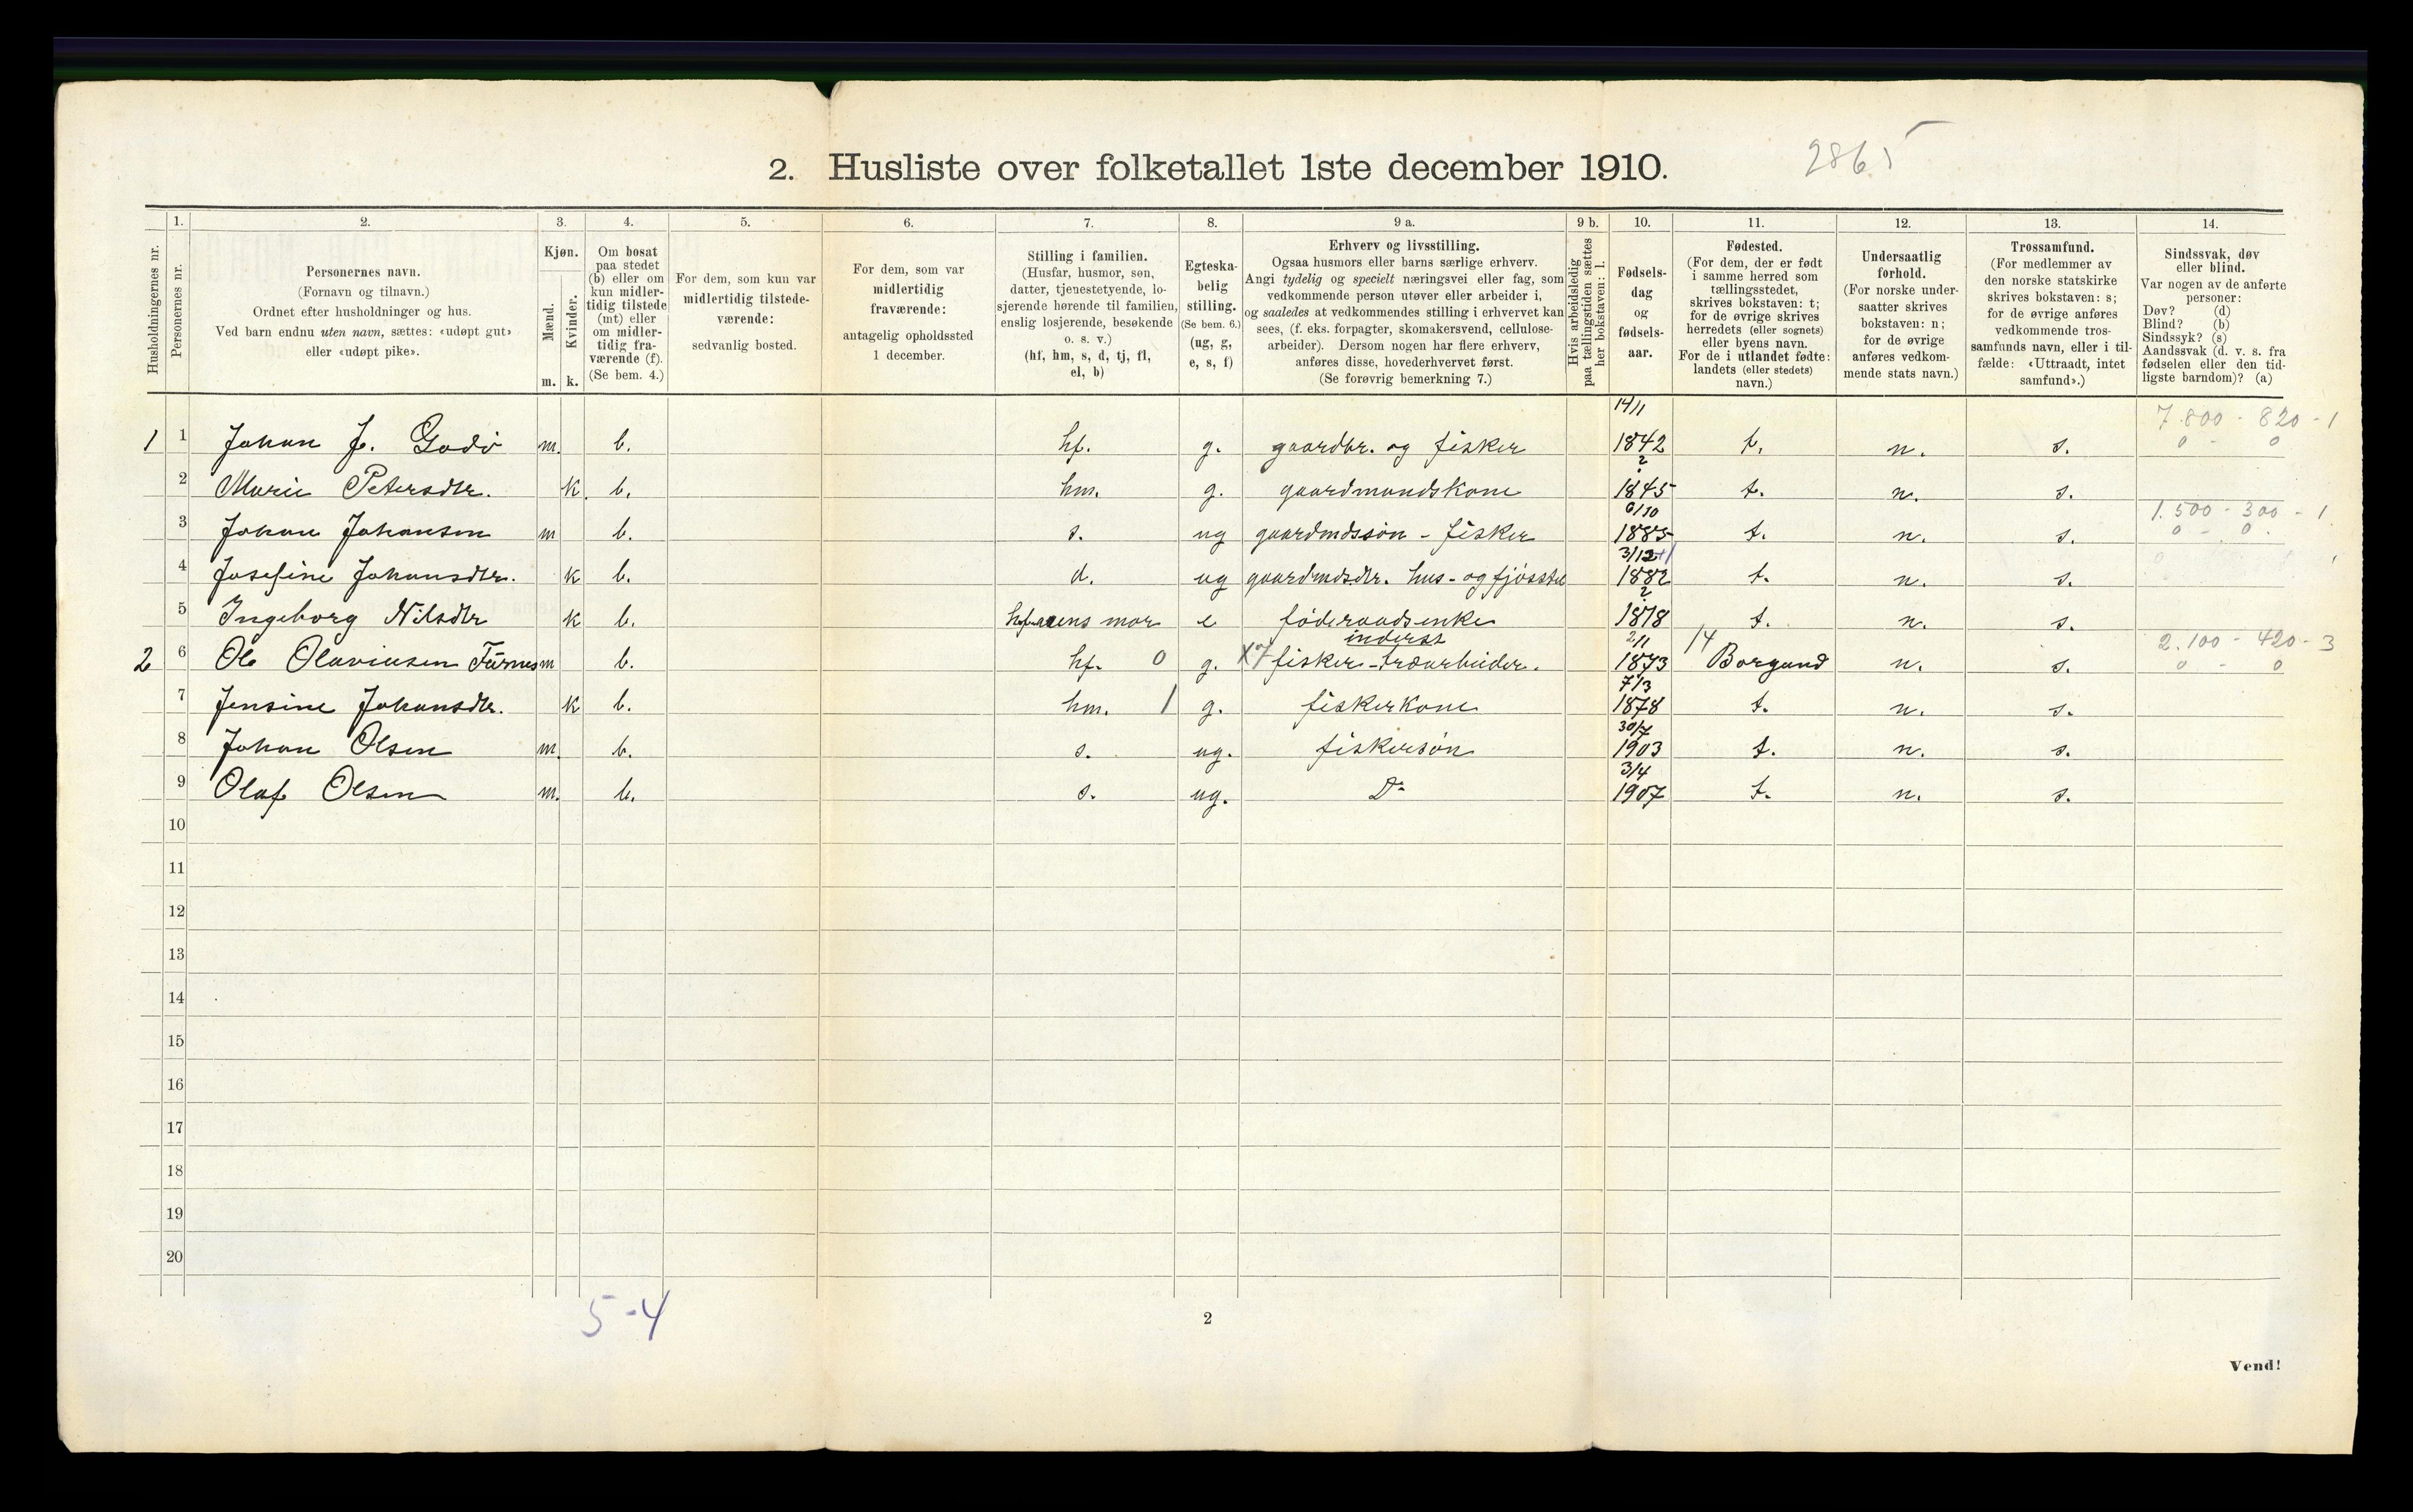 2. Husliste over folketallet 1ste december 1910.
2865
1. 2. 3. 4. 5. 6. 7. 8. 9 a. 9 b. 10. 11. 12. 13. 14.
Husholdningernes nr.
Personernes nr.
Personernes navn.
(Fornavn og tilnavn.)
Ordnet efter husholdninger og hus.
Ved barn endnu uten navn, sættes: «udøpt gut»
eller «udøpt pike».
Kjøn.
Mænd.
Kvinder.
m. k.
Om bosat
paa stedet
(b) eller om
kun midler-
tidig tilstede
(mt) eller
om midler-
tidig fra-
værende (f).
(Se bem. 4.)
For dem, som kun var
midlertidig tilstede-
værende:
sedvanlig bosted.
For dem, som var
midlertidig
fraværende:
antagelig opholdssted
1 december.
Stilling i familien.
(Husfar, husmor, søn,
datter, tjenestetyende, lo-
sjerende hørende til familien,
enslig losjerende, besøkende
o. s. v.)
(hf, hm, s, d, tj, fl,
el, b)
Egteska-
belig
stilling.
(Se bem. 6.)
(ug, g,
e, s, f)
Erhverv og livsstilling.
Ogsaa husmors eller barns særlige erhverv.
Angi tydelig og specielt næringsvei eller fag, som
vedkommende person utøver eller arbeider i,
og saaledes at vedkommendes stilling i erhvervet kan
sees, (f. eks. forpagter, skomakersvend, cellulose-
arbeider). Dersom nogen har flere erhverv,
anføres disse, hovederhvervet først.
(Se forøvrig bemerkning 7.)
Hvis arbeidsledig
paa tællingstiden sættes
her bokstaven: l.
Fødsels-
dag
og
fødsels-
aar.
Fødested.
(For dem, der er født
i samme herred som
tællingsstedet,
skrives bokstaven: t;
for de øvrige skrives
herredets (eller sognets)
eller byens navn.
For de i utlandet fødte:
landets (eller stedets)
navn.)
Undersaatlig
forhold.
(For norske under-
saatter skrives
bokstaven: n;
for de øvrige
anføres vedkom-
mende stats navn.)
Trossamfund.
(For medlemmer av
den norske statskirke
skrives bokstaven: s;
for de øvrige anføres
vedkommende tros-
samfunds navn, eller i til-
fælde: «Uttraadt, intet
samfund».)
Sindssvak, døv
eller blind.
Var nogen av de anførte
personer:
Døv? (d)
Blind? (b)
Sindssyk? (s)
Aandssvak (d. v. s. fra
fødselen eller den tid-
ligste barndom)? (a)
14/11 7.800 - 820 - 1
1 1 Johan J. Godø m. b. hf. g. gaardbr. og fisker 1842 t. n. s. 0 - 0
2 Marie Petersdtr. k. b. hm. g. gaardmandskone ? 1845 t. n. s.
6/10 1.500 - 300 - 1
3 Johan Johansen m b. s. ug gaardmdssøn - fisker 1885 t. n. s. 0 - 0.
3/12
4 Josefine Johansdtr. k b. d. ug gaardmdsdtr. hus- og fjøsstel 1882 t. n. s.
5 Ingeborg Nilsdtr k b. hfarens mor e føderaadsenke ? 1818 t. n. s.
inderst 2/11 14 2.100 - 420 - 3
2 6 Ole Olaviusen Furnes m b. hf. 0 g. X7 fisker - træarbeider. 1873 Borgund n. s. 0 - 0
7/3
7 Jensine Johansdtr. k b. hm. 1 g. fiskerkone 1878 t. n. s.
30/7
8 Johan Olsen m. b. s. ug. fiskersøn 1903 t. n. s.
3/4
9 Olaf Olsen m. b. s. ug. Do 1907 t. n. s.
10
11
12
13
14
15
16
17
18
19
20
5-4
2
Vend!